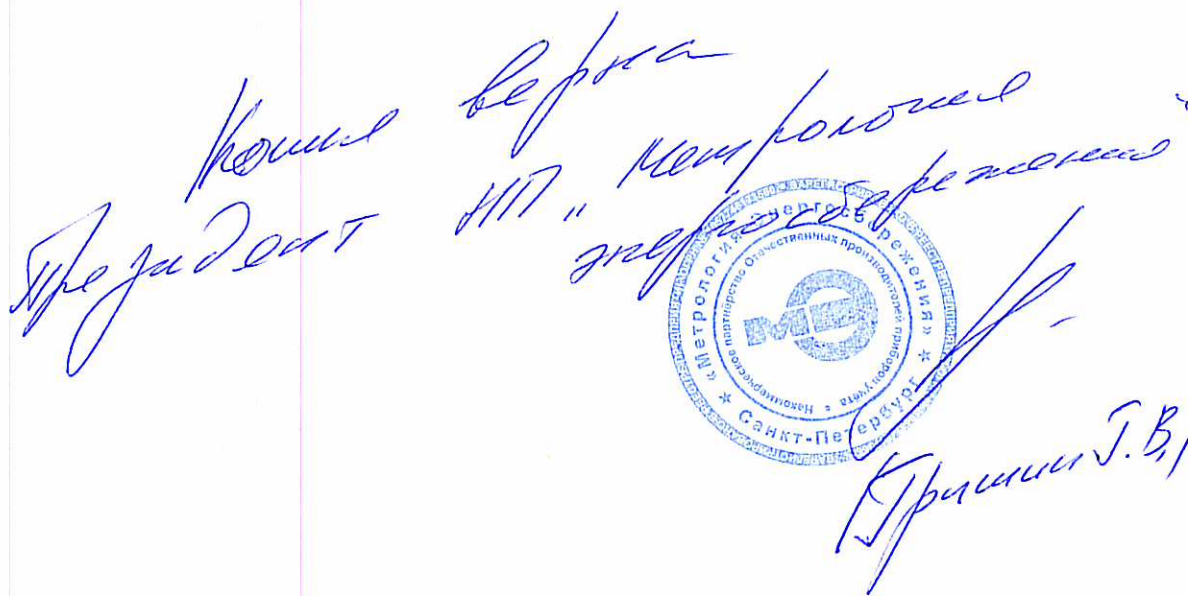 Копия верна
Президент НП „Метрология
энергосбережения"
«Метрология Энергосбережения»
☆ Санкт-Петербург ☆
Некоммерческое партнёрство Отечественных производителей приборов учета
МЭ
(Гришин Г.В.)